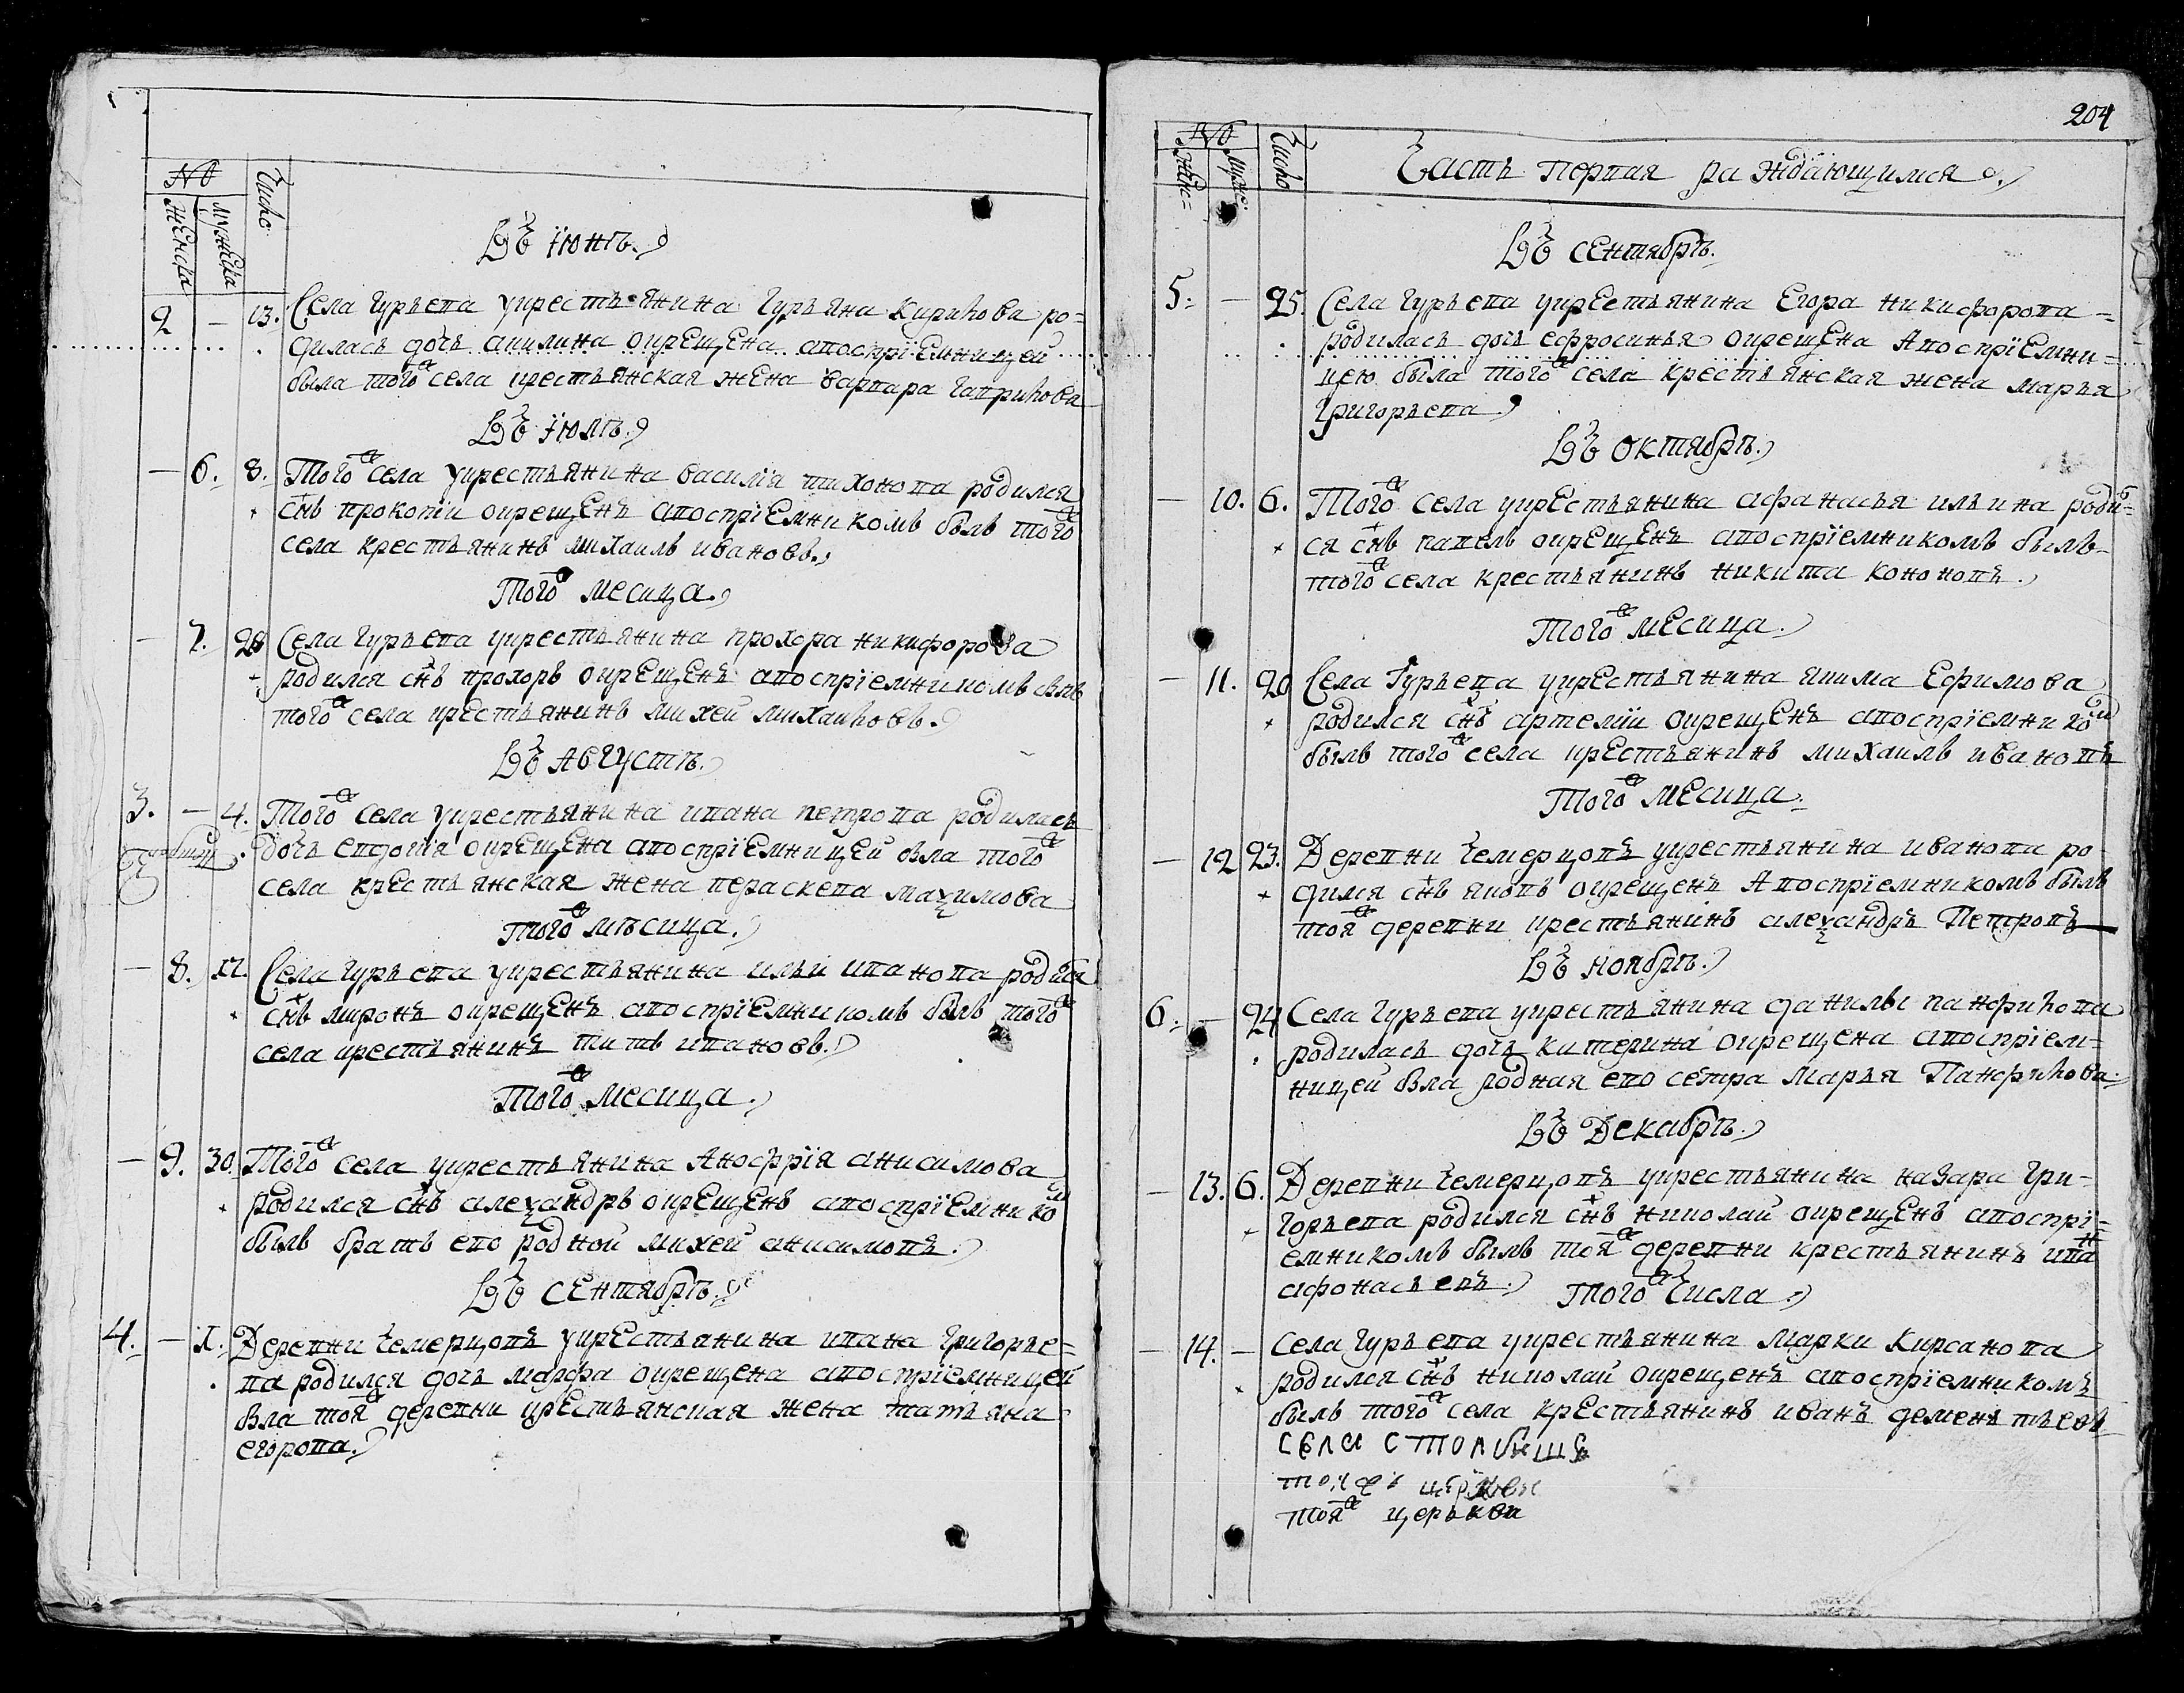 №
Женска
мужеска
Число
Въ їюнѣ.
2 — 13. Села Гурьева укрестьянина Гурьяна Кирилова ро=
дилась дочь акилина окрещена авоспрїемницей
была того ж села крестьянская жена варвара Гаврилова
Въ їюлѣ.
— 6. 8. Того ж села укрестьянина василїя тихонова родился
снъ прокопїи окрещенъ авоспрїемникомъ былъ того ж
села крестьянинъ михаилъ ивановъ.
Того ж месица.
— 7. 28 Села Гурьева укрестьянина прохора никифорова
родился снъ прохоръ окрещенъ авоспрїемникомъ былъ
того ж села крестьянинъ михей михаиловъ.
Въ Августѣ.
3. — 4. Того ж села укрестьянина ивана петрова родилась
дочь евдокїя окрещена авоспрїемницей была того ж
села крестьянская жена параскева маѯимова
того ж мѣсица.
— 8. 17. Села Гурьева укрестьянина ильи иванова родился
снъ миронъ окрещенъ авоспрїемникомъ былъ того ж
села крестьянинъ титъ ивановъ.
Того ж месица.
— 9. 30. Того ж села укрестьянина Аноѳрїя анисимова
родился снъ алеѯандръ окрещенъ авоспрїемником
былъ братъ ево родной михей анисимовъ.
Въ сентябрѣ.
4. — 1. Деревни Чемерцовъ укрестьянина ивана Григорье=
ва родился дочь марфа окрещена авоспрїемницей
была тоя ж деревни крестьянская жена татьяна
егорова.
204
№
Женс=
мужс:
Число
Часть первая ра ждающимся.
Въ сентябрѣ.
5. — 25. Села Гурьева укрестьянина Егора никифорова =
родилась дочь ефросинья окрещена Авоспрїемни=
цею была того ж села крестьянская жена марья
Григорьева
Въ октябрѣ.
— 10. 6. Того ж села укрестьянина афанасья ильина родил=
ся снъ павелъ окрещенъ авоспрїемникомъ былъ
того ж села крестьянинъ никита кононовъ.
Того ж месица.
— 11. 20 Села Гурьева укрестьянина якима Ефимова
родился снъ артемїи окрещенъ авоспрїемником
былъ того ж села крестьянинъ михаилъ ивановъ
Того ж месица.
— 12 23. Деревни Чемерцовъ укрестьянина иванова ро
дился снъ яковъ окрещенъ Авоспрїемникомъ былъ
тоя ж деревни крестьянинъ алеѯандръ Петровъ
Въ ноябрѣ.
6. — 24 Села Гурьева укрестьянина данилы панфилова
родилась дочь катерина окрещена авоспрїем=
ницей была родная ево сетра Марья Панфилова.
Въ Декабрѣ.
— 13. 6. Деревни Чемерцовъ укрестьянина назара Гри=
горьева родился снъ николай окрещенъ авоспрї=
емникомъ былъ тоя ж деревни крестьянинъ иван
афонасьевъ. Того ж числа.
— 14. — Села Гурьева укрестьянина Марки Кирсанова
родился снъ николай окрещенъ авоспрїемникомъ
былъ того ж села крестьянинъ иванъ деменьтьевъ
села столбищъ
тоя ж церкви